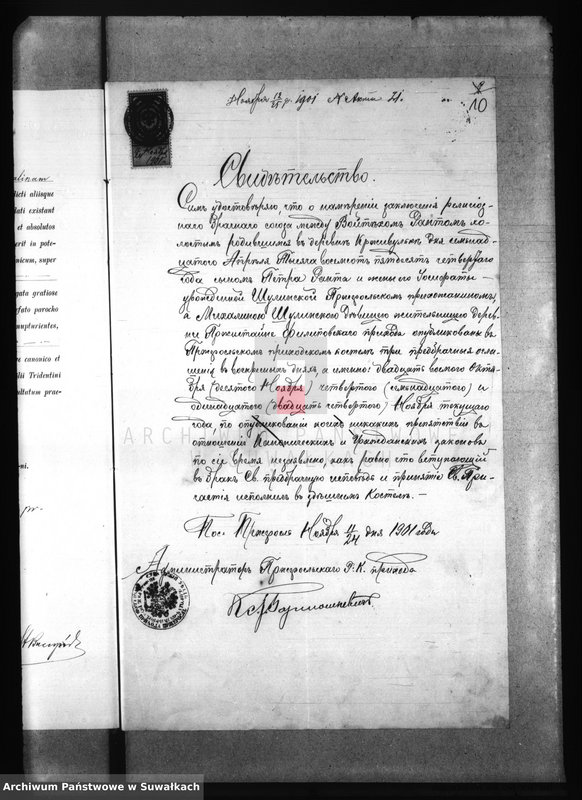 Ноября 12/25 д. 1901 N Акта 21.
10
Свидѣтельство.
Симъ удостовѣряю что о намѣреніи заключенія религіоз-
наго брачнаго союза между Войтѣхомъ Рантомъ хо-
лостымъ родившимся въ деревнѣ дня семнад-
цатаго Апрѣля Тысяча восемсотъ пятьдесятъ четвертаго
года сыномъ Петра Ранта и жены его Іосифаты
урожденной Шулинской Пржеросльскомъ прихожаниномъ,
а Михалиною дѣвицею жительницею дерев-
ни Филиповскаго прихода опубликованъ въ
Пржеросльскомъ приходскомъ костелѣ три предбрачныя огла-
шенія въ воскресныя дни, а именно: двадцать восьмого Октя-
бря (десятого Ноября) четвертого (семнадцатого) и
одинадцатого (двадцать четвертого) Ноября текущаго
года по опубликованіи коихъ никакихъ препятствій въ
отношеніи Каноническихъ и Гражданскихъ законовъ
по сіе время не заявлено какъ равно что вступающій
въ бракъ Св. предбрачную исповѣдь и принятіе Св. При-
частія исполнилъ въ здѣшнемъ Костелѣ. —
Пос. Пржеросль Ноября 11/24 дня 1901 года
Администраторъ Пржеросльскаго Р. К. прихода
dicti aliisque
lati existant
et absolutos
erit in pote-
nicum, super
gata gratiose
efato parocho
mnupturientes,
re canonico et
ilii Tridentini
ultatum prae-
ni.
pr.
Archiwum Państwowe w Suwałkach